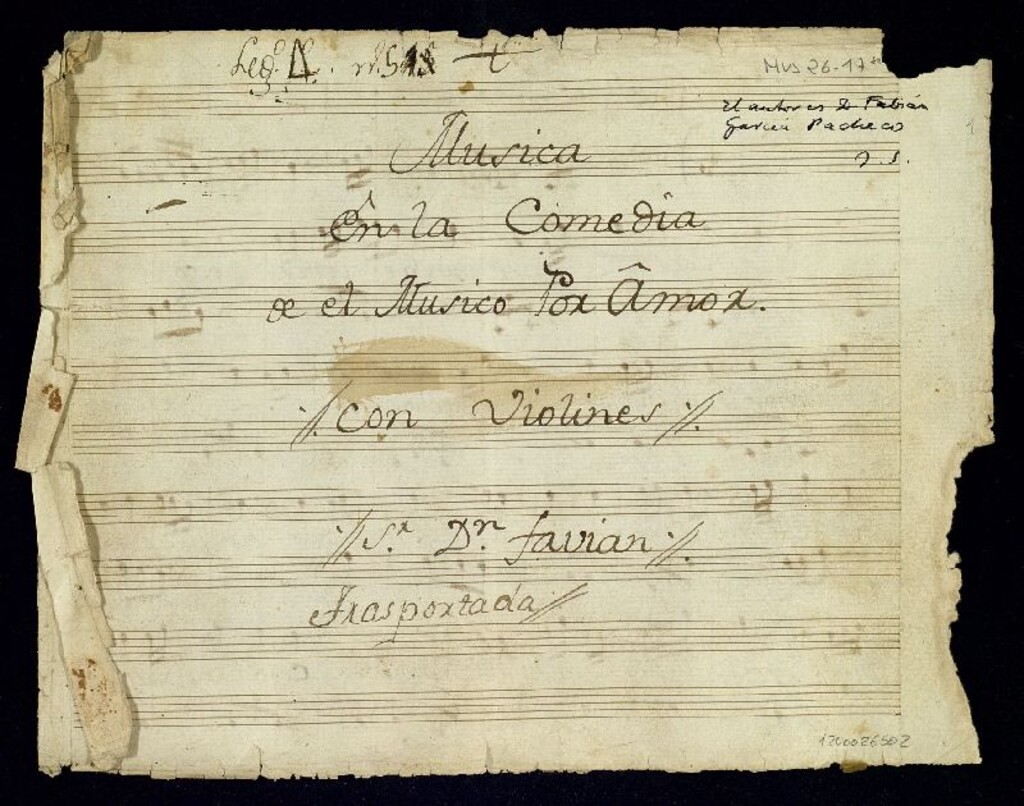 Leg.º 4.º nº 5
Mus 26-17
el autor es D Fabián
García Pacheco
Musica
En la Comedia
de el Musico Por Amor.
//. Con Violines //.
//. S.r D.n favian //.
Trasportada //
1200026502